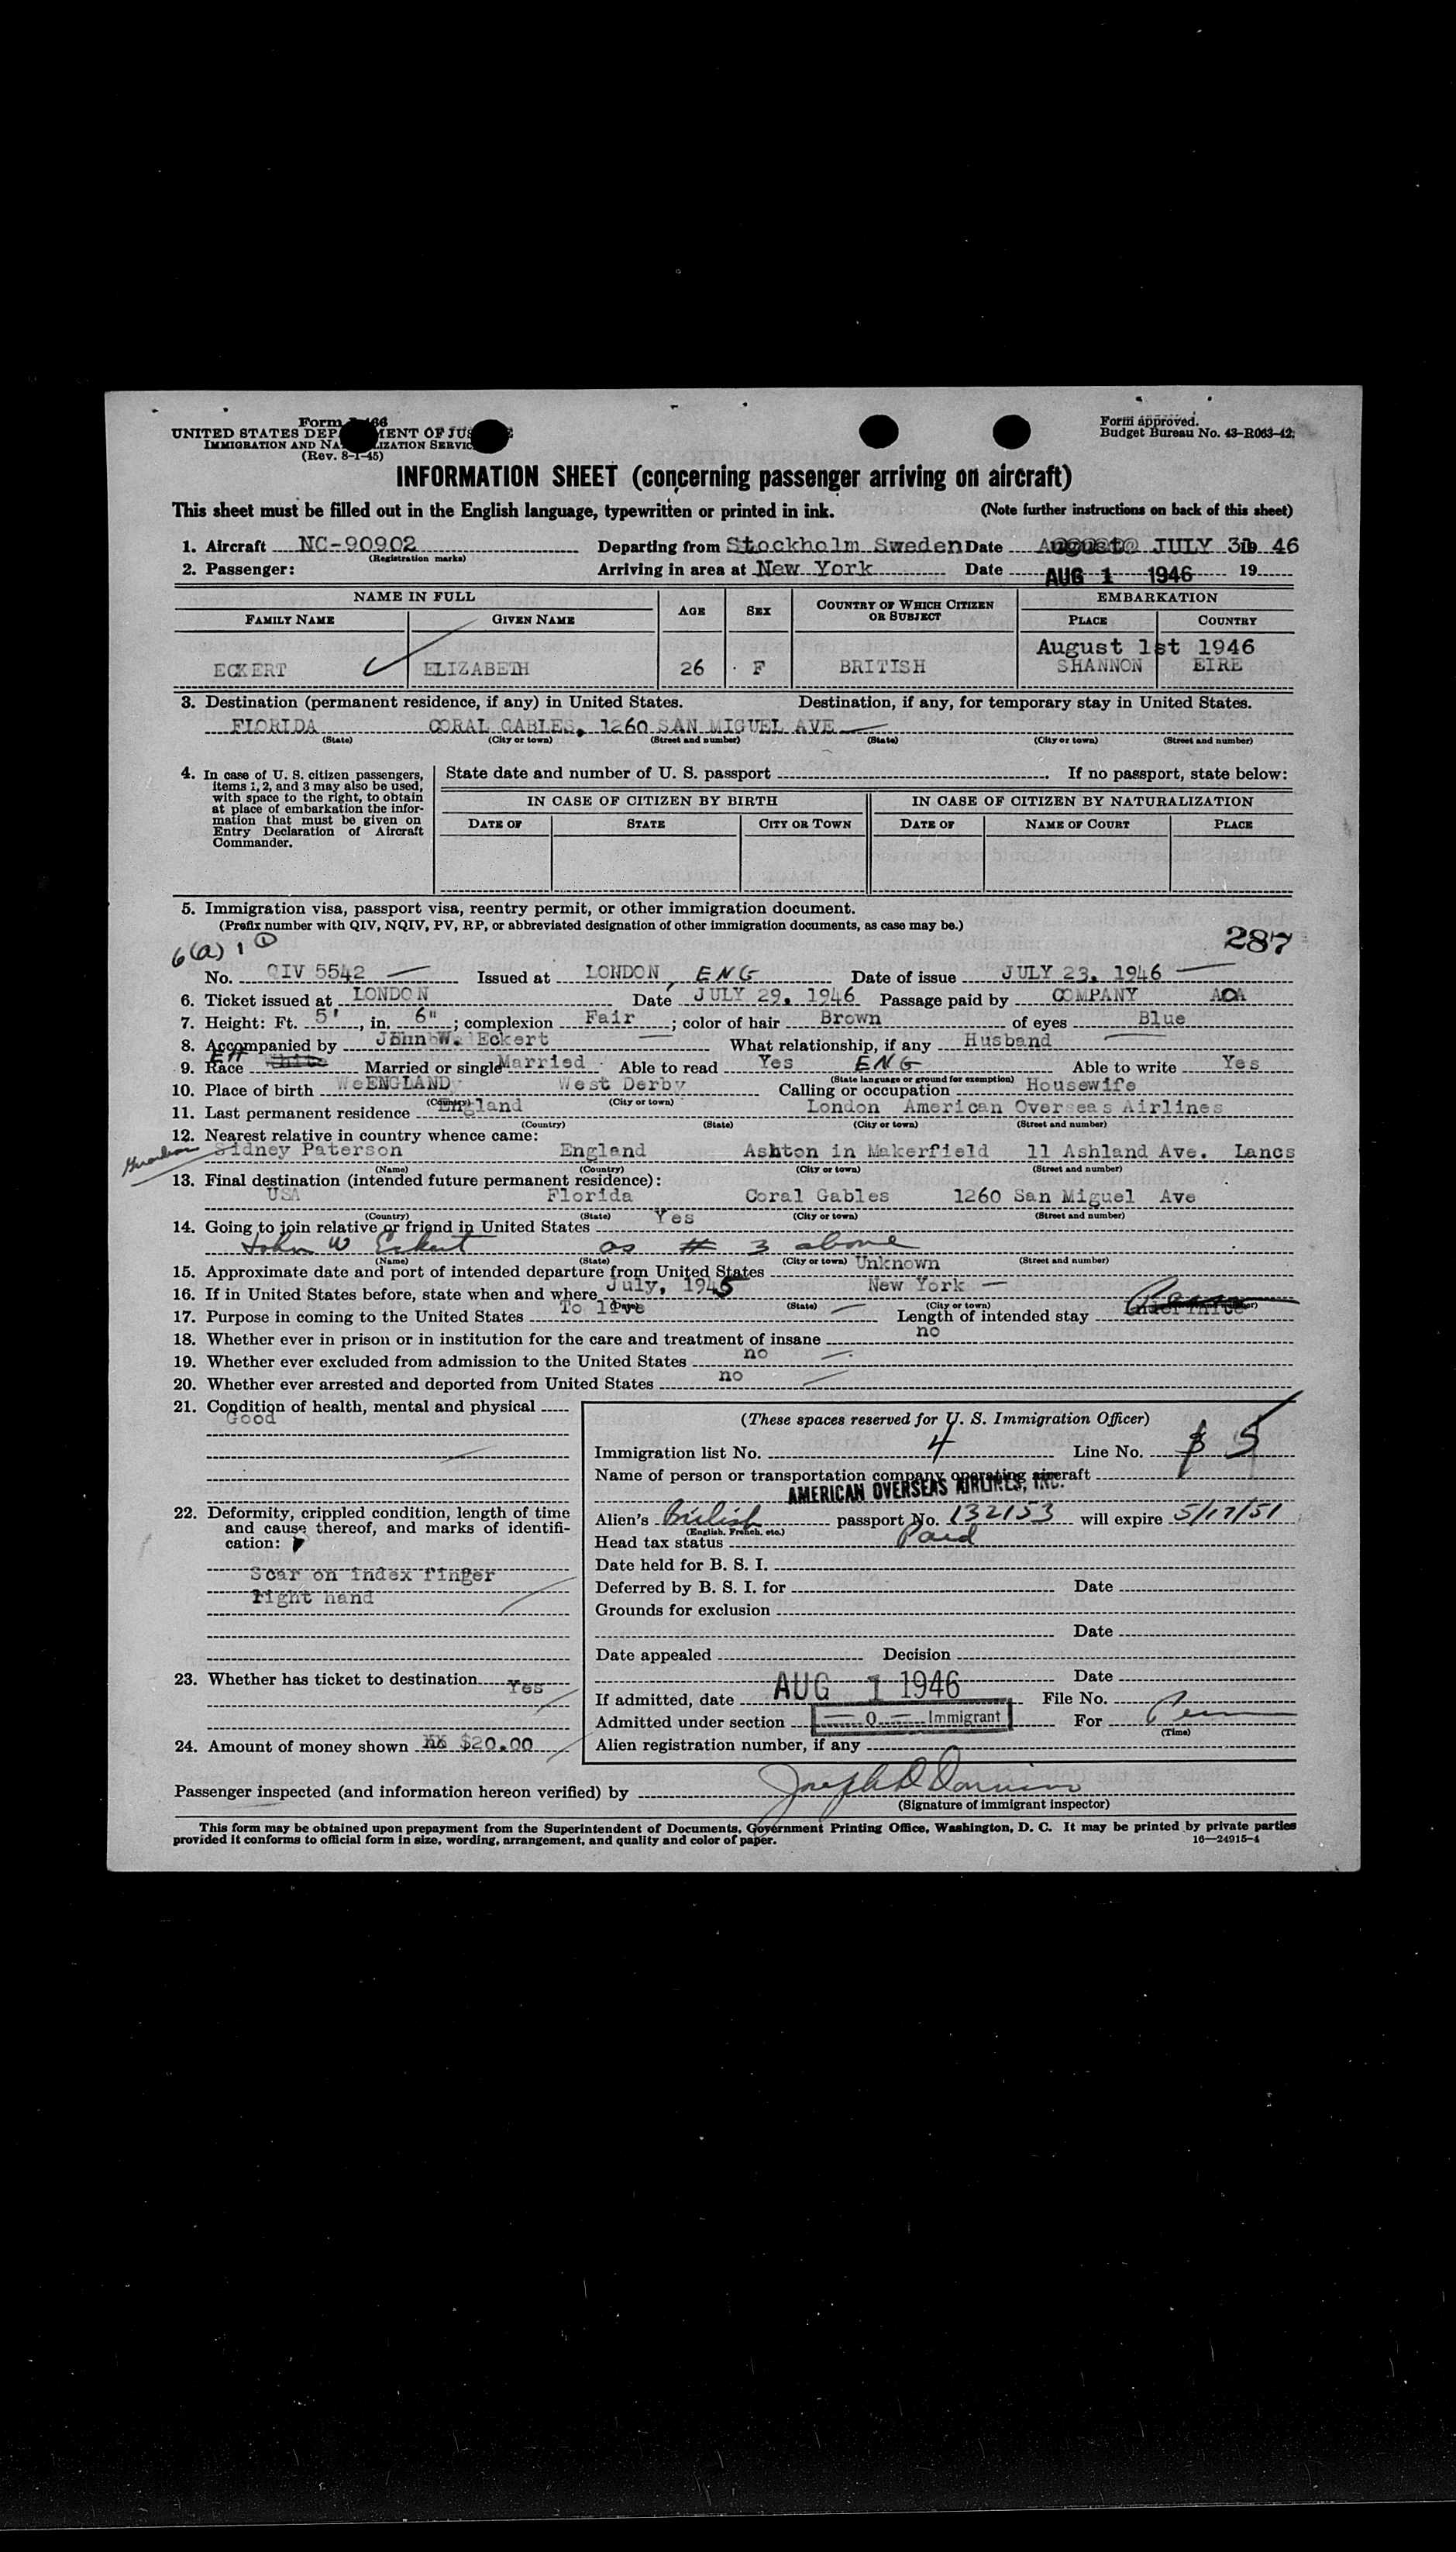 Form I-466
UNITED STATES DEPARTMENT OF JUSTICE
IMMIGRATION AND NATURALIZATION SERVICE
(Rev. 8-1-45)
Form approved.
Budget Bureau No. 43-R063-42.
INFORMATION SHEET (concerning passenger arriving on aircraft)
This sheet must be filled out in the English language, typewritten or printed in ink. (Note further instructions on back of this sheet)
1. Aircraft NC-90902 Departing from Stockholm Sweden Date August JULY 31 19 46
(Registration marks)
2. Passenger: Arriving in area at New York Date AUG 1 1946 19
NAME IN FULL AGE SEX COUNTRY OF WHICH CITIZEN OR SUBJECT EMBARKATION
FAMILY NAME GIVEN NAME PLACE COUNTRY
August 1st 1946
ECKERT ELIZABETH 26 F BRITISH SHANNON EIRE
3. Destination (permanent residence, if any) in United States. Destination, if any, for temporary stay in United States.
FLORIDA CORAL GABLES, 1260 SAN MIGUEL AVE
(State) (City or town) (Street and number) (State) (City or town) (Street and number)
4. In case of U. S. citizen passengers, items 1, 2, and 3 may also be used, with space to the right, to obtain at place of embarkation the information that must be given on Entry Declaration of Aircraft Commander.
State date and number of U. S. passport . If no passport, state below:
IN CASE OF CITIZEN BY BIRTH IN CASE OF CITIZEN BY NATURALIZATION
DATE OF STATE CITY OR TOWN DATE OF NAME OF COURT PLACE
5. Immigration visa, passport visa, reentry permit, or other immigration document.
(Prefix number with QIV, NQIV, PV, RP, or abbreviated designation of other immigration documents, as case may be.)
6(a) 1 1 287
No. QIV 5542 Issued at LONDON, ENG Date of issue JULY 23, 1946
6. Ticket issued at LONDON Date JULY 29, 1946 Passage paid by COMPANY AOA
7. Height: Ft. 5', in. 6"; complexion Fair; color of hair Brown of eyes Blue
8. Accompanied by John W. Eckert What relationship, if any Husband
9. Race White Married or single Married Able to read Yes ENG Able to write Yes
(State language or ground for exemption)
10. Place of birth ENGLAND West Derby Calling or occupation Housewife
(Country) (City or town)
11. Last permanent residence England London American Overseas Airlines
(Country) (State) (City or town) (Street and number)
12. Nearest relative in country whence came:
Sidney Paterson England Ashton in Makerfield 11 Ashland Ave. Lancs
(Name) (Country) (City or town) (Street and number)
13. Final destination (intended future permanent residence):
USA Florida Coral Gables 1260 San Miguel Ave
(Country) (State) (City or town) (Street and number)
14. Going to join relative or friend in United States Yes
John W Eckert as # 3 above
(Name) (State) (City or town) (Street and number)
15. Approximate date and port of intended departure from United States Unknown
16. If in United States before, state when and where July, 1945 New York
(Date) (State) (City or town)
17. Purpose in coming to the United States To live Length of intended stay
18. Whether ever in prison or in institution for the care and treatment of insane no
19. Whether ever excluded from admission to the United States no
20. Whether ever arrested and deported from United States no
21. Condition of health, mental and physical
Good
22. Deformity, crippled condition, length of time and cause thereof, and marks of identification:
Scar on index finger
right hand
23. Whether has ticket to destination Yes
24. Amount of money shown $20.00
(These spaces reserved for U. S. Immigration Officer)
Immigration list No. 4 Line No. 5
Name of person or transportation company operating aircraft
AMERICAN OVERSEAS AIRLINES, INC.
Alien's British passport No. 132153 will expire 5/17/51
(English, French, etc.)
Head tax status Paid
Date held for B. S. I.
Deferred by B. S. I. for Date
Grounds for exclusion
Date
Date appealed Decision
Date
If admitted, date AUG 1 1946 File No.
Admitted under section O Immigrant For Perm
(Time)
Alien registration number, if any
Passenger inspected (and information hereon verified) by
(Signature of immigrant inspector)
This form may be obtained upon prepayment from the Superintendent of Documents, Government Printing Office, Washington, D. C. It may be printed by private parties
provided it conforms to official form in size, wording, arrangement, and quality and color of paper. 16—24915-4